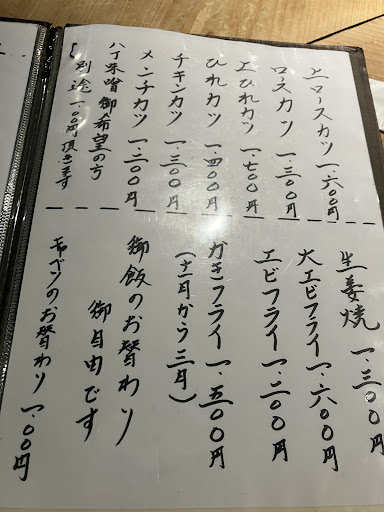 上ロースカツ 一.六〇〇円
ロースカツ 一.三〇〇円
上ひれカツ 一.七〇〇円
ひれカツ 一.四〇〇円
チキンカツ 一.三〇〇円
メンチカツ 一.二〇〇円
八丁味噌御希望の方
別途一〇〇円頂きます
生姜焼 一.三〇〇円
大エビフライ 一.六〇〇円
エビフライ 一.二〇〇円
かきフライ 一.五〇〇円
(十一月から三月)
御飯のお替わり
御自由です
キャベツのお替わり 一〇〇円